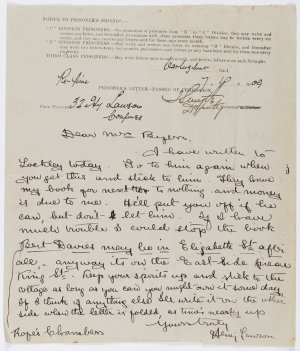 NOTICE TO PRISONER'S FRIENDS:—
"C" DIVISION PRISONERS.—On promotion of prisoners from "B" to "C" Division, they may write and
receive
"B" DIVISION PRISONERS.—May write and receive one letter on entering "B" Division, and thereafter
THIRD CLASS PRISONERS.—May write and receive
Darlinghurst Gaol
PRISONER'S LETTER—PASSED BY
From Prisoner
Hy Lawson
Dear Mrs Byers.
I have written to
Lockley today. Go to him again when
you get this and stick to him. They have
my book for next to nothing and money
is due to me. He'll put you off if he
can, but don't let him. If I have
much trouble I could stop the book
Bert Davies may be in Elizabeth St after
all. anyway its on the East side near
King St. Keep your spirits up and stick to the
cottage as long as you can you might own it some day.
If I think of anything else I'll write it on the other
side when the letter is folded, as time's nearly up
Yours truly
Henry Lawson
Rope's Chambers